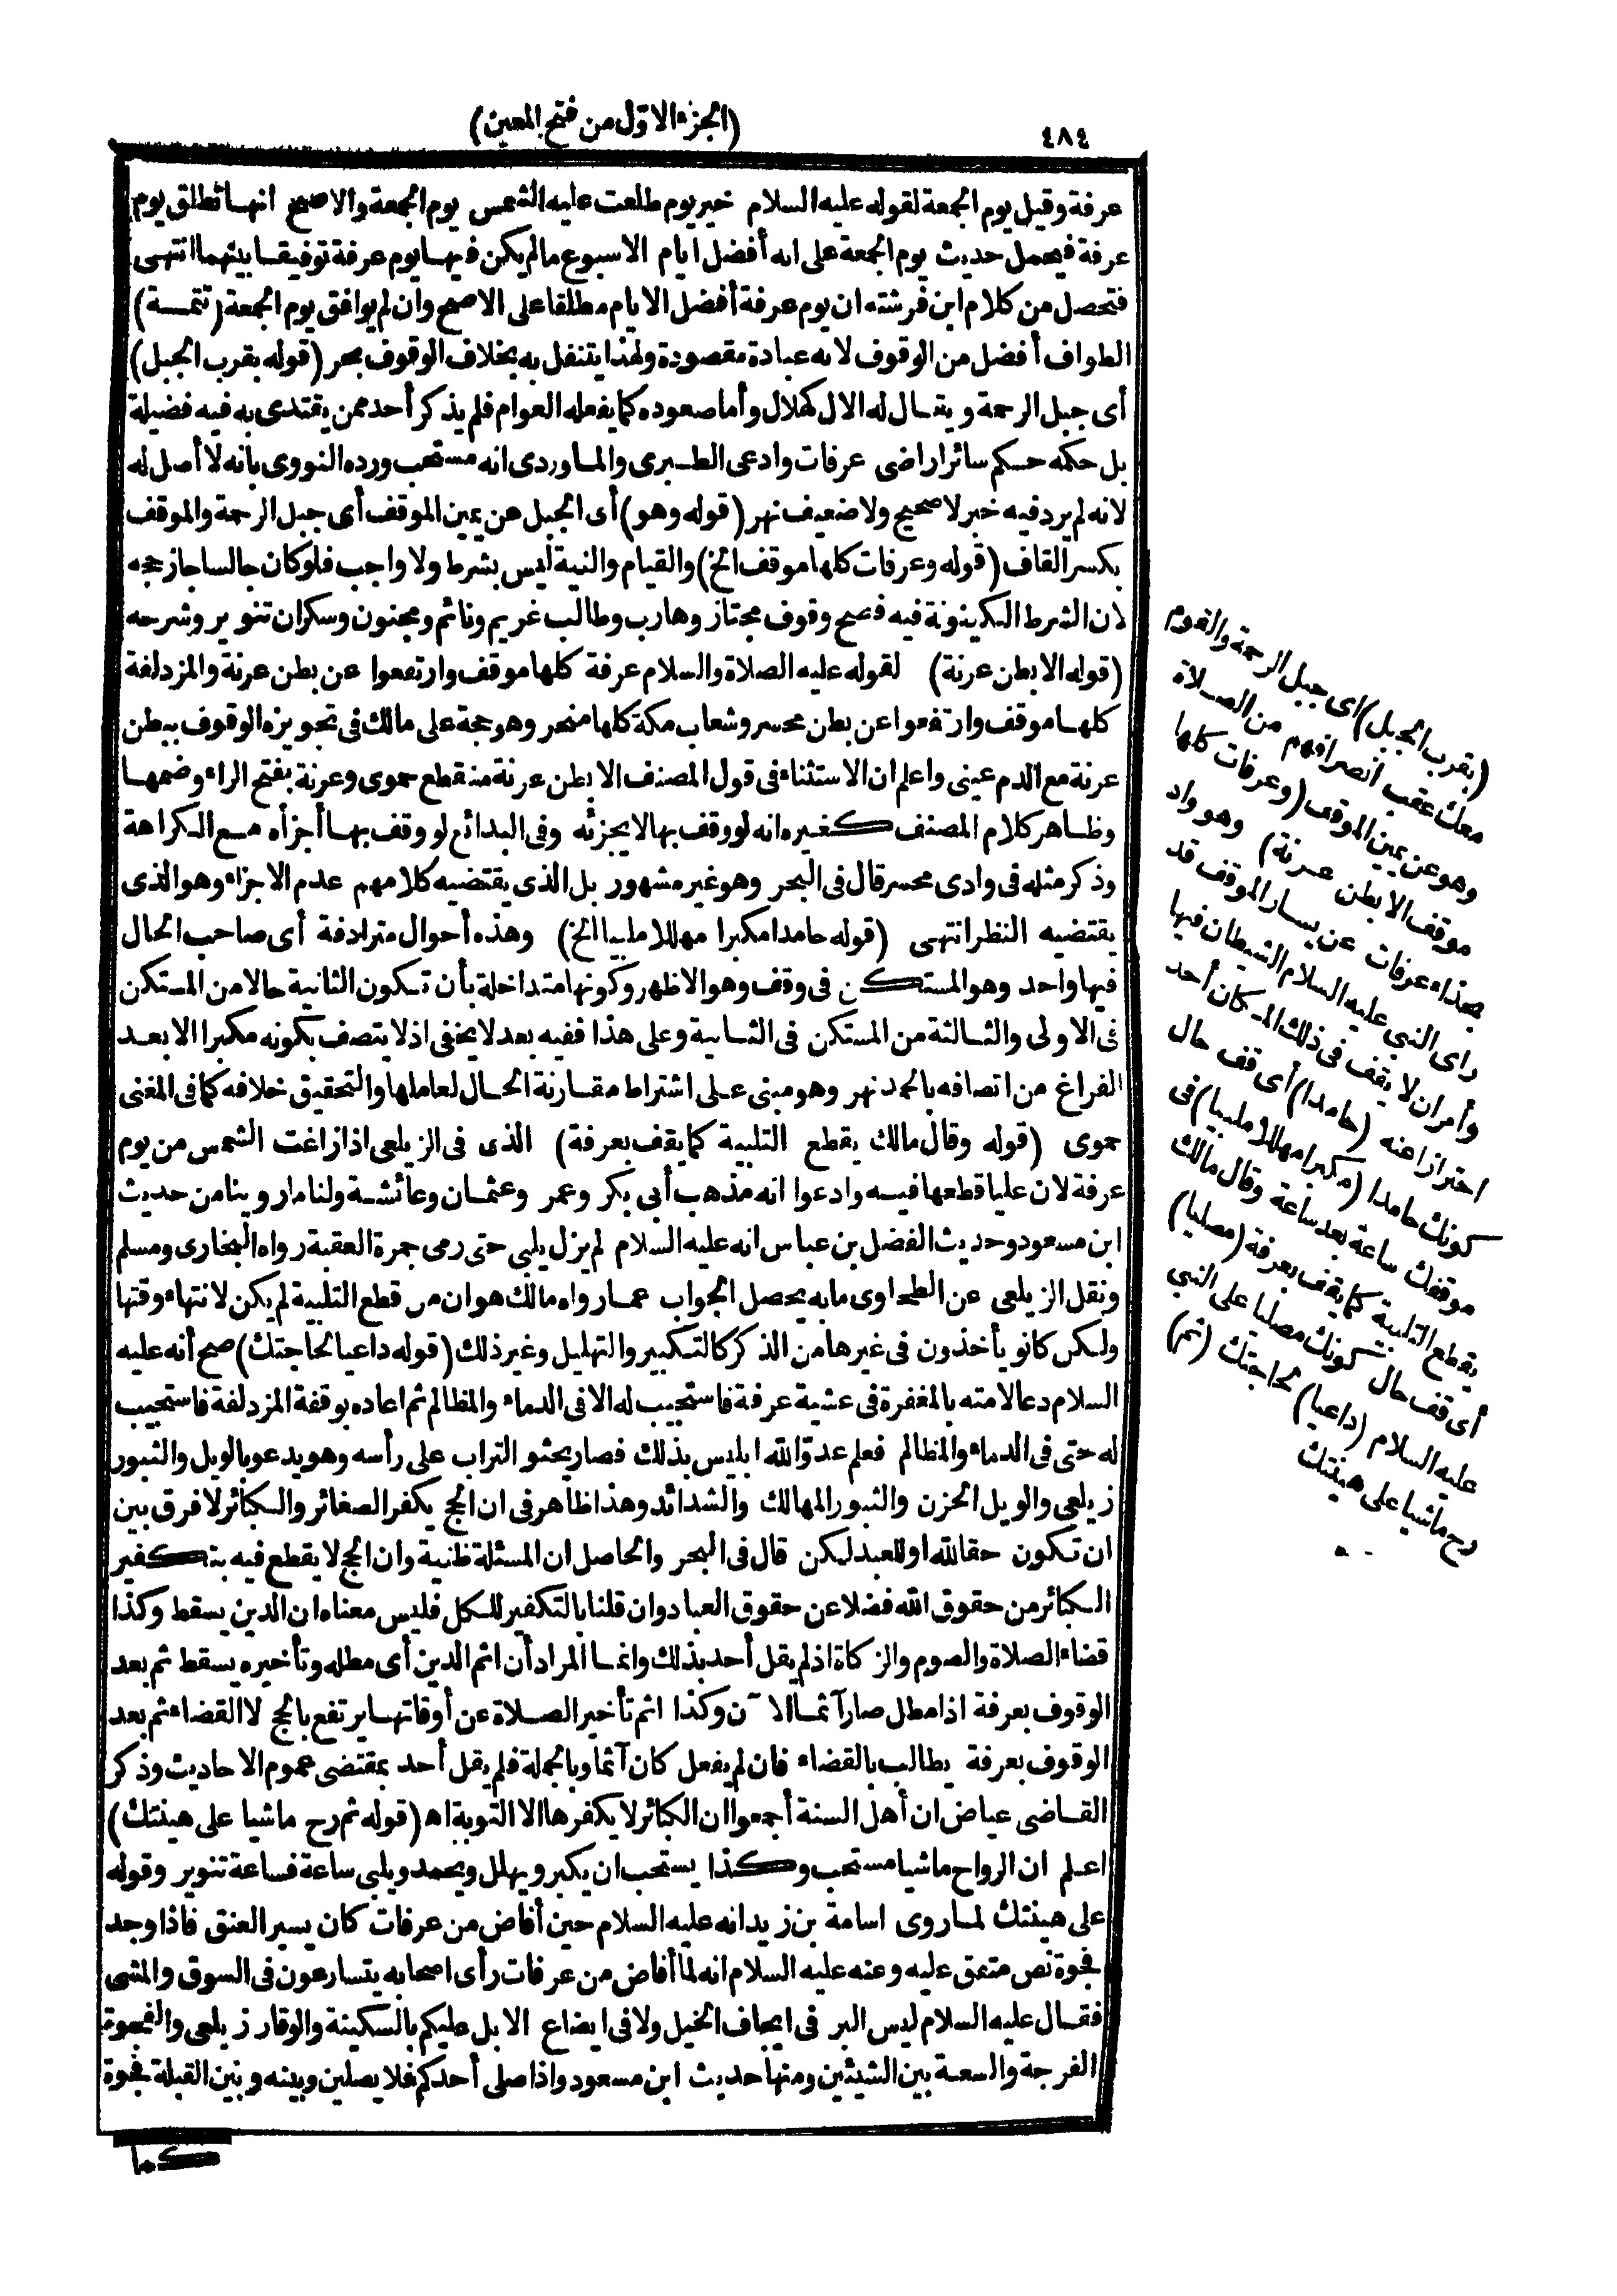 ٤٨٤
(الجزء الاوّل من فتح المعين)
عرفة وقيل يوم الجمعة لقوله عليه السلام خير يوم طلعت عليه الشمس يوم الجمعة والاصح انها تطلق يوم
عرفة فيحمل حديث يوم الجمعة على انه أفضل ايام الاسبوع ما لم يكن فيها يوم عرفة توفيقا بينهما انتهى
فتحصل من كلام ابن فرشته ان يوم عرفة أفضل الايام مطلقا على الاصح وان لم يوافق يوم الجمعة (تتمة)
الطواف أفضل من الوقوف لانه عبادة مقصودة ولهذا يتنفل به بخلاف الوقوف بحر (قوله بقرب الجبل)
أى جبل الرحمة ويقال له الال كهلال وأما صعوده كما يفعله العوام فلم يذكر أحد ممن يقتدى به فيه فضيلة
بل حكمه حكم سائر اراضى عرفات وادعى الطبرى والماوردى انه مستحب ورده النووى بانه لا أصل له
لانه لم يرد فيه خبر لا صحيح ولا ضعيف نهر (قوله وهو) أى الجبل عن يمين الموقف أى جبل الرحمة والموقف
بكسر القاف (قوله وعرفات كلها موقف الخ) والقيام والنية ليس بشرط ولا واجب فلو كان جالسا جاز حجه
لان الشرط الكينونة فيه فصح وقوف مجتاز وهارب وطالب غريم ونائم ومجنون وسكران تنوير وشرحه
(قوله الا بطن عرنة) لقوله عليه الصلاة والسلام عرفة كلها موقف وارتفعوا عن بطن عرنة والمزدلفة
كلها موقف وارتفعوا عن بطن محسر وشعاب مكة كلها منحر وهو حجة على مالك فى تجويزه الوقوف ببطن
عرنة مع الدم عينى واعلم ان الاستثناء فى قول المصنف الا بطن عرنة منقطع حموى وعرنة بفتح الراء وضمها
وظاهر كلام المصنف كغيره انه لو وقف بها لا يجزئه وفى البدائع لو وقف بها أجزأه مع الكراهة
وذكر مثله فى وادى محسر قال فى البحر وهو غير مشهور بل الذى يقتضيه كلامهم عدم الاجزاء وهو الذى
يقتضيه النظر انتهى (قوله حامدا مكبرا مهللا ملبيا الخ) وهذه أحوال مترادفة أى صاحب الحال
فيها واحد وهو المستكن فى وقف وهو الاظهر وكونها متداخلة بأن تكون الثانية حالا من المستكن
فى الاولى والثالثة من المستكن فى الثانية وعلى هذا ففيه بعد لا يخفى اذ لا يتصف بكونه مكبرا الا بعد
الفراغ من اتصافه بالحمد نهر وهو مبنى على اشتراط مقارنة الحال لعاملها والتحقيق خلافه كما فى المغنى
حموى (قوله وقال مالك يقطع التلبية كما يقف بعرفة) الذى فى الزيلعى اذا زاغت الشمس من يوم
عرفة لان عليا قطعها فيه وادعوا انه مذهب أبى بكر وعمر وعثمان وعائشة ولنا ما روينا من حديث
ابن مسعود وحديث الفضل بن عباس انه عليه السلام لم يزل يلبى حتى رمى جمرة العقبة رواه البخارى ومسلم
ونقل الزيلعى عن الطحاوى ما به يحصل الجواب عما رواه مالك هو ان من قطع التلبية لم يكن لانتهاء وقتها
ولكن كانو يأخذون فى غيرها من الذكر كالتكبير والتهليل وغير ذلك (قوله داعيا لحاجتك) صح أنه عليه
السلام دعا لامته بالمغفرة فى عشية عرفة فاستجيب له الا فى الدماء والمظالم ثم اعاده بوقفة المزدلفة فاستجيب
له حتى فى الدماء والمظالم فعلم عدوّ الله ابليس بذلك فصار يحثو التراب على رأسه وهو يدعو بالويل والثبور
زيلعى والويل الحزن والثبور المهالك والشدائد وهذا ظاهر فى ان الحج يكفر الصغائر والكبائر لا فرق بين
ان تكون حقا لله او للعبد ليكن قال فى البحر والحاصل ان المسئلة ظنية وان الحج لا يقطع فيه بتكفير
الكبائر من حقوق الله فضلا عن حقوق العباد وان قلنا بالتكفير للكل فليس معناه ان الدين يسقط وكذا
قضاء الصلاة والصوم والزكاة اذ لم يقل أحد بذلك وانما المراد أن اثم الدين أى مطله وتأخيره يسقط ثم بعد
الوقوف بعرفة اذا مطل صار آثما الآن وكذا اثم تأخير الصلاة عن أوقاتها يرتفع بالحج لا القضاء ثم بعد
الوقوف بعرفة يطالب بالقضاء فان لم يفعل كان آثما وبالجملة فلم يقل أحد بمقتضى عموم الاحاديث وذكر
القاضى عياض ان أهل السنة أجمعوا ان الكبائر لا يكفرها الا التوبة اه (قوله ثم رح ماشيا على هينتك)
اعلم ان الرواح ماشيا مستحب وكذا يستحب ان يكبر ويهلل ويحمد ويلبى ساعة فساعة تنوير وقوله
على هينتك لما روى اسامة بن زيد انه عليه السلام حين أفاض من عرفات كان يسير العنق فاذا وجد
فجوة نص متفق عليه وعنه عليه السلام انه لما أفاض من عرفات رأى اصحابه يتسارعون فى السوق والمشى
فقال عليه السلام ليس البر فى ايجاف الخيل ولا فى ايضاع الابل عليكم بالسكينة والوقار زيلعى والفجوة
الفرجة والسعة بين الشيئين ومنها حديث ابن مسعود واذا صلى أحدكم فلا يصلين وبينه وبين القبلة فجوة
كما
(بقرب الجبل) اى جبل الرحمة والقوم
معك عقب انصرافهم من الصلاة
وهو عن يمين الموقف (وعرفات كلها
موقف الا بطن عرنة) وهو واد
بحذاء عرفات عن يسار الموقف قد
راى النبى عليه السلام الشيطان فيها
وأمر ان لا يقف فى ذلك المكان أحد
احترازا عنه (حامدا) أى قف حال
كونك حامدا (مكبرا مهللا ملبيا) فى
موقفك ساعة بعد ساعة وقال مالك
يقطع التلبية كما يقف بعرفة (مصليا)
أى قف حال كونك مصليا على النبى
عليه السلام (داعيا) لحاجتك (ثم)
رح ماشيا على هينتك